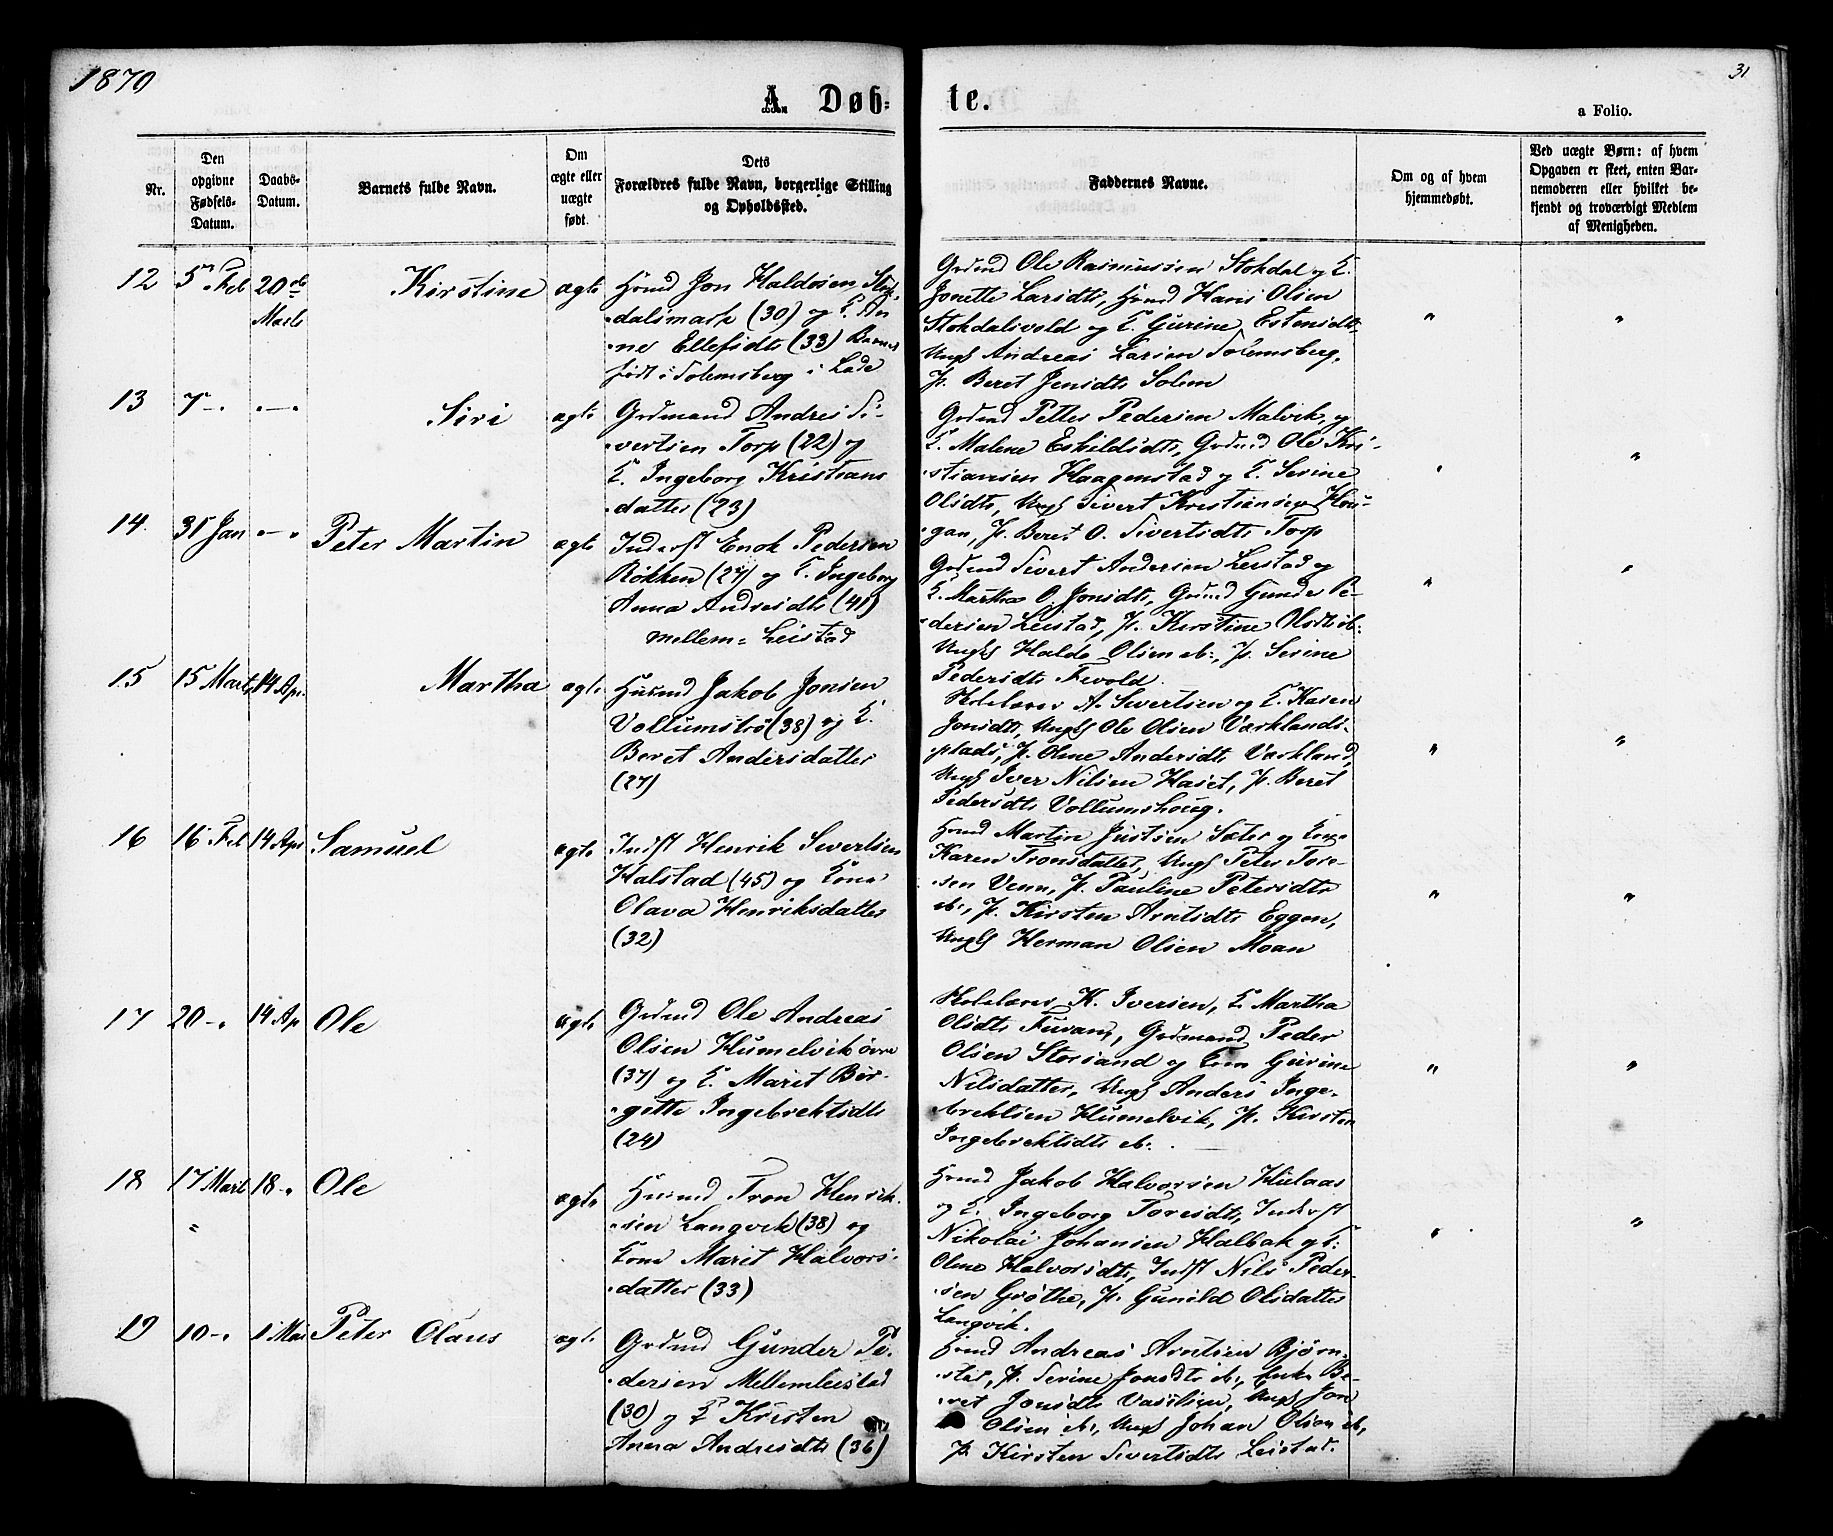 1870
31
A. Døb-
te.
a Folio.
Nr.
Den
opgivne
Fødsels-
Datum.
Daabs-
Datum.
Barnets fulde Navn.
Om
ægte eller
uægte
født.
Dets
Forældres fulde Navn, borgerlige Stilling
og Opholdssted.
Faddernes Navne.
Om og af hvem
hjemmedøbt.
Ved uægte Børn: af hvem
Opgaven er skeet, enten Bar-
nemoderen eller hvilket be-
kjendt og troværdigt Medlem
af Menigheden.
12
5 Feb
20
Marts
Kirstine
ægte
Hsmd Jon Haldosen Stok-
dalsmark (30) og K. An-
ne Ellefsdtr (33) Barnet
født i Solemsberg i Lade
Grdmd Ole Rasmussen Stokdal og K.
Jonette Larsdtr, Hsmd Hans Olsen
Stokdalsvold og K. Gurine Estensdtr
Ungk Andreas Larsen Solemsberg,
P. Beret Jensdtr Solem
"
"
13
7 - "
" - "
Siri
ægte
Grdmand Andreas Si-
vertsen Torp (22) og
K. Ingeborg Kristians
datter (23)
Grdmd Petter Pedersen Malvik og
K. Malene Eskildsdtr, Grdmd Ole Kri-
stiansen Haagenstad og K. Serine
Olsdtr, Ungk Sivert Kristiansen Hou-
gan, P. Beret O. Sivertsdtr Torp
"
"
14.
31 Jan
" - "
Peter Martin
ægte
Inderst Enok Pedersen
Rökken (27) og K. Ingeborg
Anna Andresdtr (41)
Mellem= Leistad
Grdmd Sivert Andersen Leistad og
K. Martha O. Jonsdtr, Grdmd Gunder Pe-
dersen Leistad, P. Kirstine Olsdtr sb:
Ungk Haldo Olsen sb:, P. Serine
Pedersdtr
"
"
15
15 Marts
14 Apr.
Martha
ægte
Husmd Jakob Jonsen
Vollumstrø (38) og K.
Beret Andersdatter
(27)
Skolelærer A. Sivertsen og K. Karen
Jonsdtr, Ungk Ole Olsen Værklands-
plads, P. Oline Andersdtr Værkland,
Ungk Iver Nilsen Haset, P. Beret
Pedersdtr Vollumshoug.
"
"
16
16 Feb
14 Apr
Samuel
ægte
Indst Henrik Sivertsen
Halstad (45) og Kone
Olava Henriksdatter
(32)
Hsmd Martin Justsen Sæter og Kone
Karen Tronsdatter, Ungk Peter Tore-
sen Venn, P. Pauline Petersdtr
sb:, P. Kirsten Arntsdtr Eggen,
Ungk Herman Olsen Moan
"
"
17
20 - "
14 Ap
Ole
ægte
Grdmd Ole Andreas
Olsen Humelvik øvre
(37) og K. Marit Bir-
gitte Ingebrektsdtr
(24)
Skolelærer K. Iversen, K. Martha
Olsdtr Furan, Grdmand Peder
Olsen Storsand og Kone Gurine
Nilsdatter, Ungk Anders Inge-
brektsen Humelvik, P. Kirsten
Ingebrektsdtr sb:
"
"
18
17 Marts
"
18 - "
Ole
ægte
Husmd Tron Henrik-
sen Langvik (38) og
Kone Marit Halvors-
datter (33)
Hsmd Jakob Halvorsen Hulaas
og K. Ingeborg Toresdtr, Inderst
Nikolai Johansen Halbak og K:
Oline Halvorsdtr, Indst Nils Peder-
sen Grøthe, P. Gunild Olsdatter
Langvik.
"
"
19
10 - "
1 Mai
Peter Olaus
ægte
Grdmd Gunder Pe-
dersen Mellemleistad
(30) og K Kirsten
Anna Andresdtr (36)
Hsmd Andreas Arntsen Bjørn-
stad, P. Serine Jonsdtr sb:, Enke Be-
ret Jonsdtr Vaslien, Ungk Jon
Olsen sb:, Ungk Johan Olsen sb,
P. Kirsten Sivertsdtr Leistad.